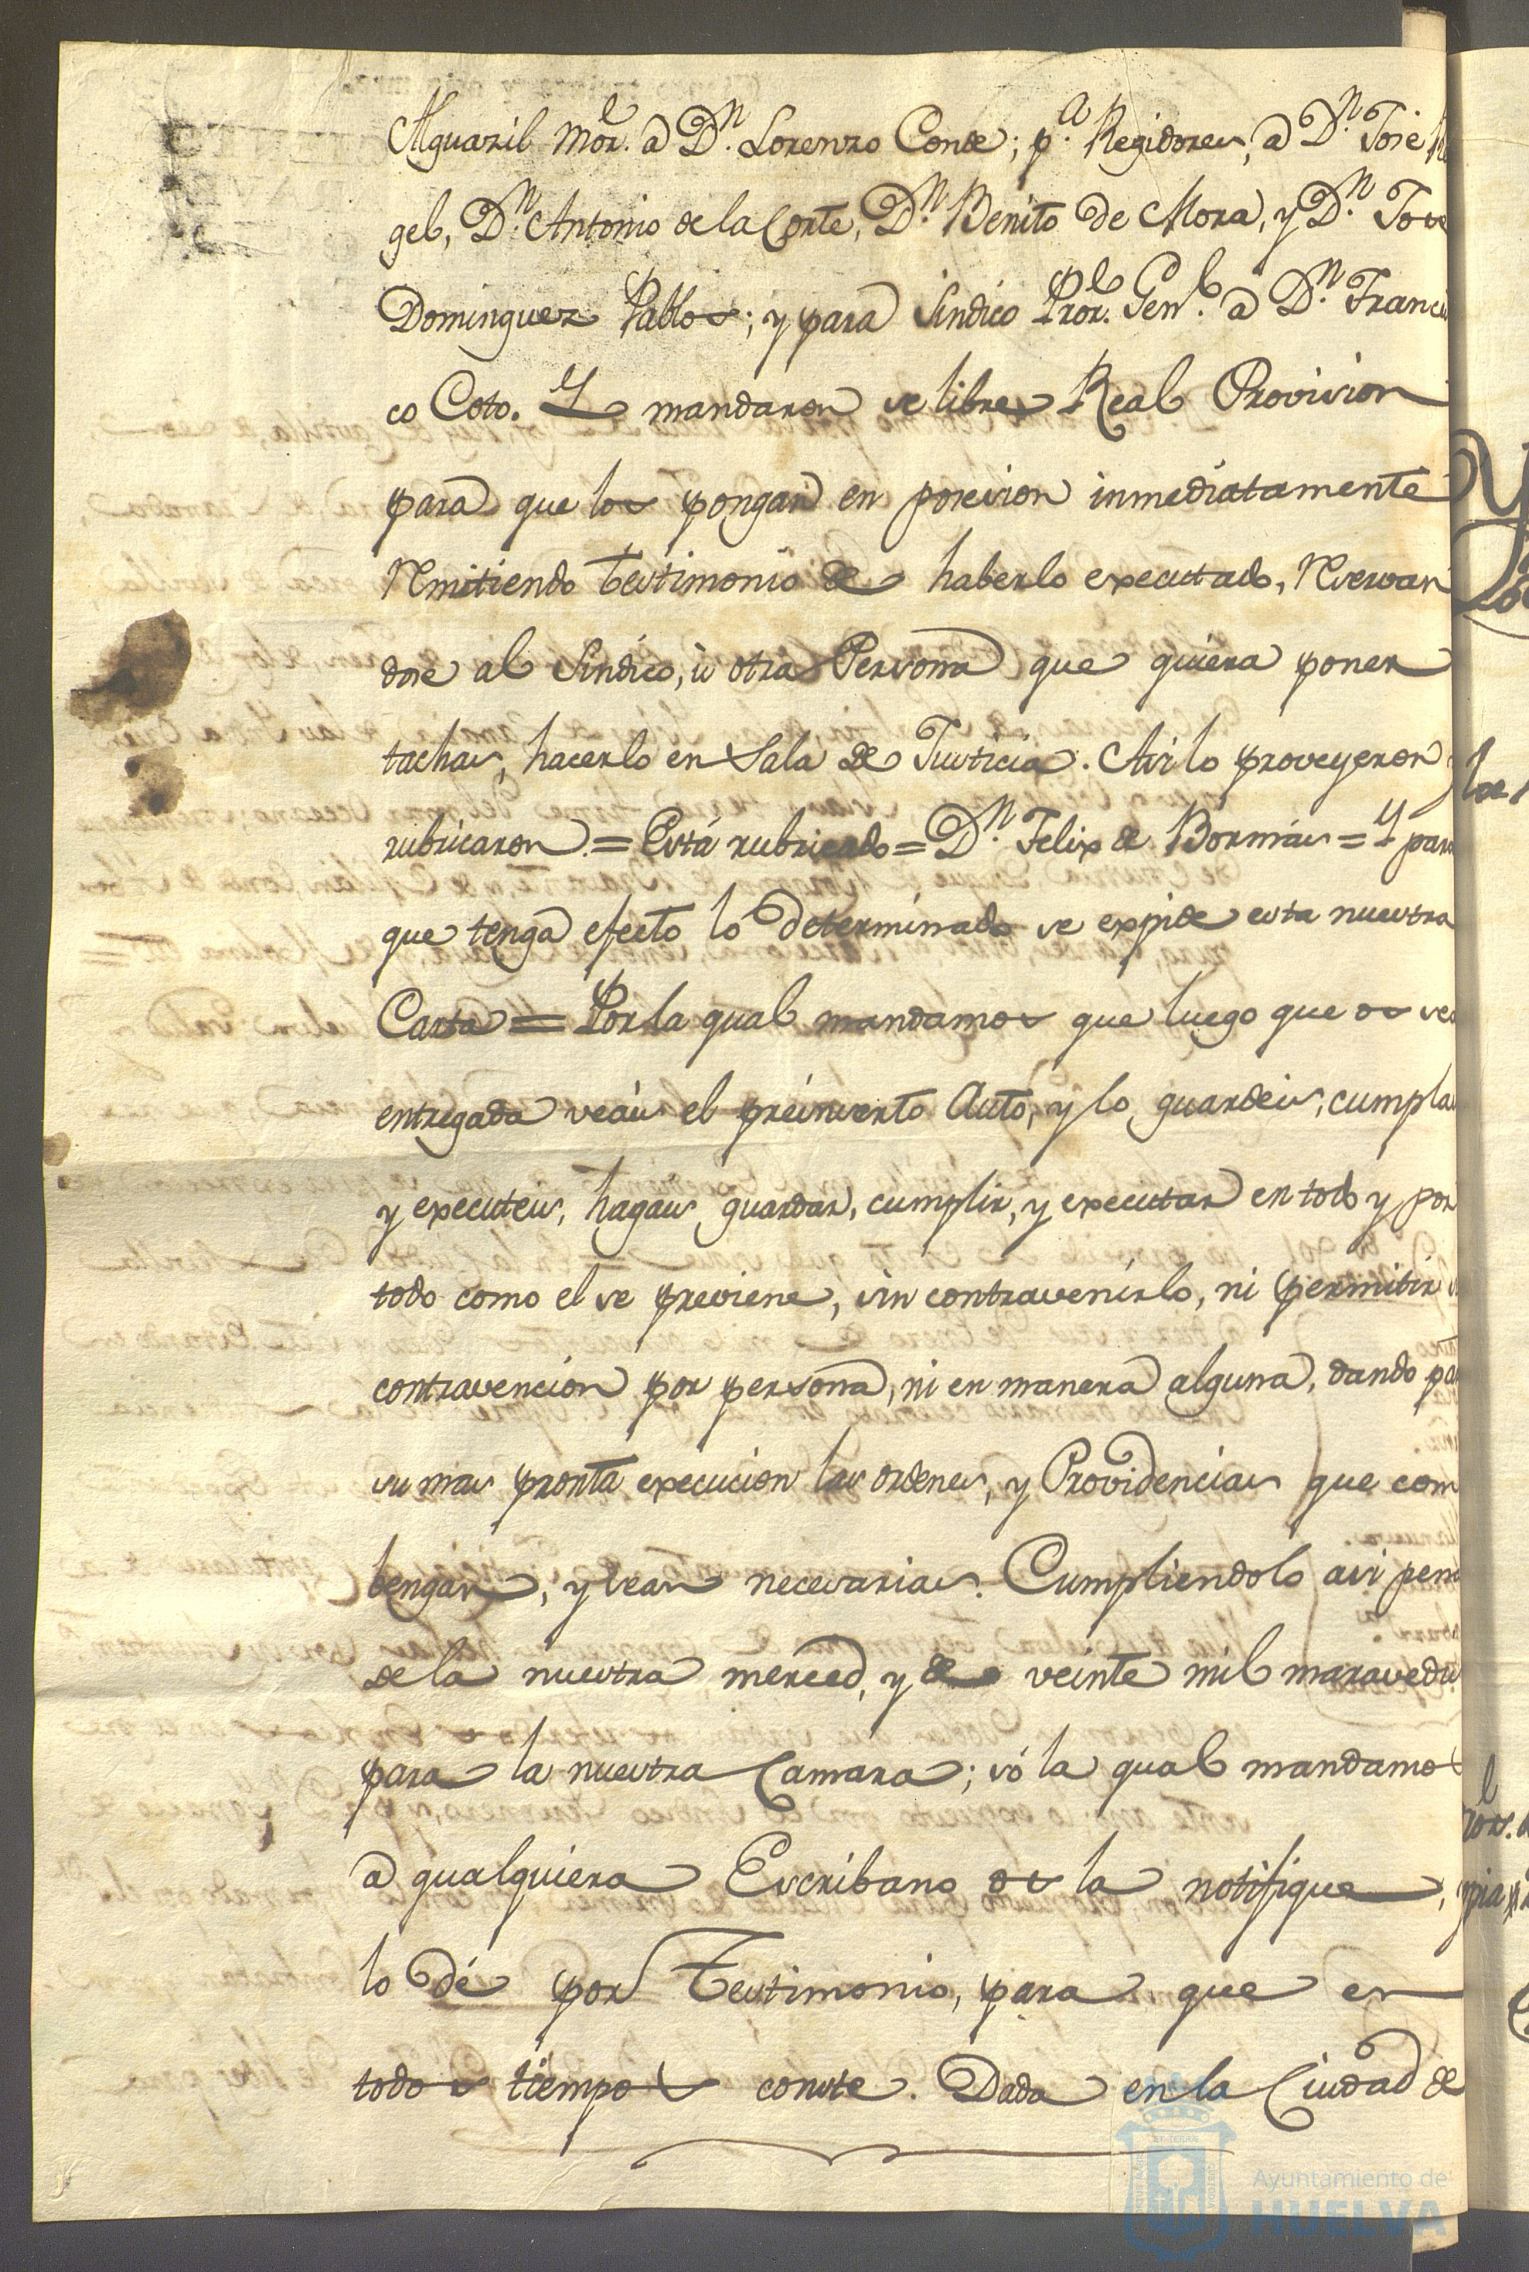 Alguazil Mor. a Dn. Lorenzo Conde; pa. Regidores, a Dn. José
gel, Dn. Antonio de la Corte, Dn. Benito de Mora, y Dn. Jose
Dominguez Pablos; y para Sindico Pror. Genl. a Dn. Francis
co Coto. Y mandaron se libre Real Provision
para que los pongan en posesion inmediatamente
Remitiendo testimonio de haberlo executado, Reservan
dose al Sindico, ù otra Persona que quiera poner
tachas, hacerlo en Sala de Justicia. Asi lo proveyeron
rubricaron = Está rubricado = Dn. Felix de Bormás = Y para
que tenga efecto lo determinado se expide esta nuestra
Carta = Por la qual mandamos que luego que os sea
entregada veáis el préinserto Auto, y lo guardeis, cumplais
y executeis, hagais guardar, cumplir, y executar en todo y por
todo como el se previene, sin contravenirlo, ni permitir su
contravencion por persona, ni en manera alguna, dando para
su mas pronta execucion las ordenes, y Providencias que com
bengan, y sean necesarias. Cumpliendolo asi pena
de la nuestra merced, y de veinte mil maravedis
para la nuestra Camara; só la qual mandamos
a qualquiera Escribano os la notifique,
lo dé por Testimonio, para que en
todos tiempos conste. Dada en la Ciudad de
Ayuntamiento de
HUELVA